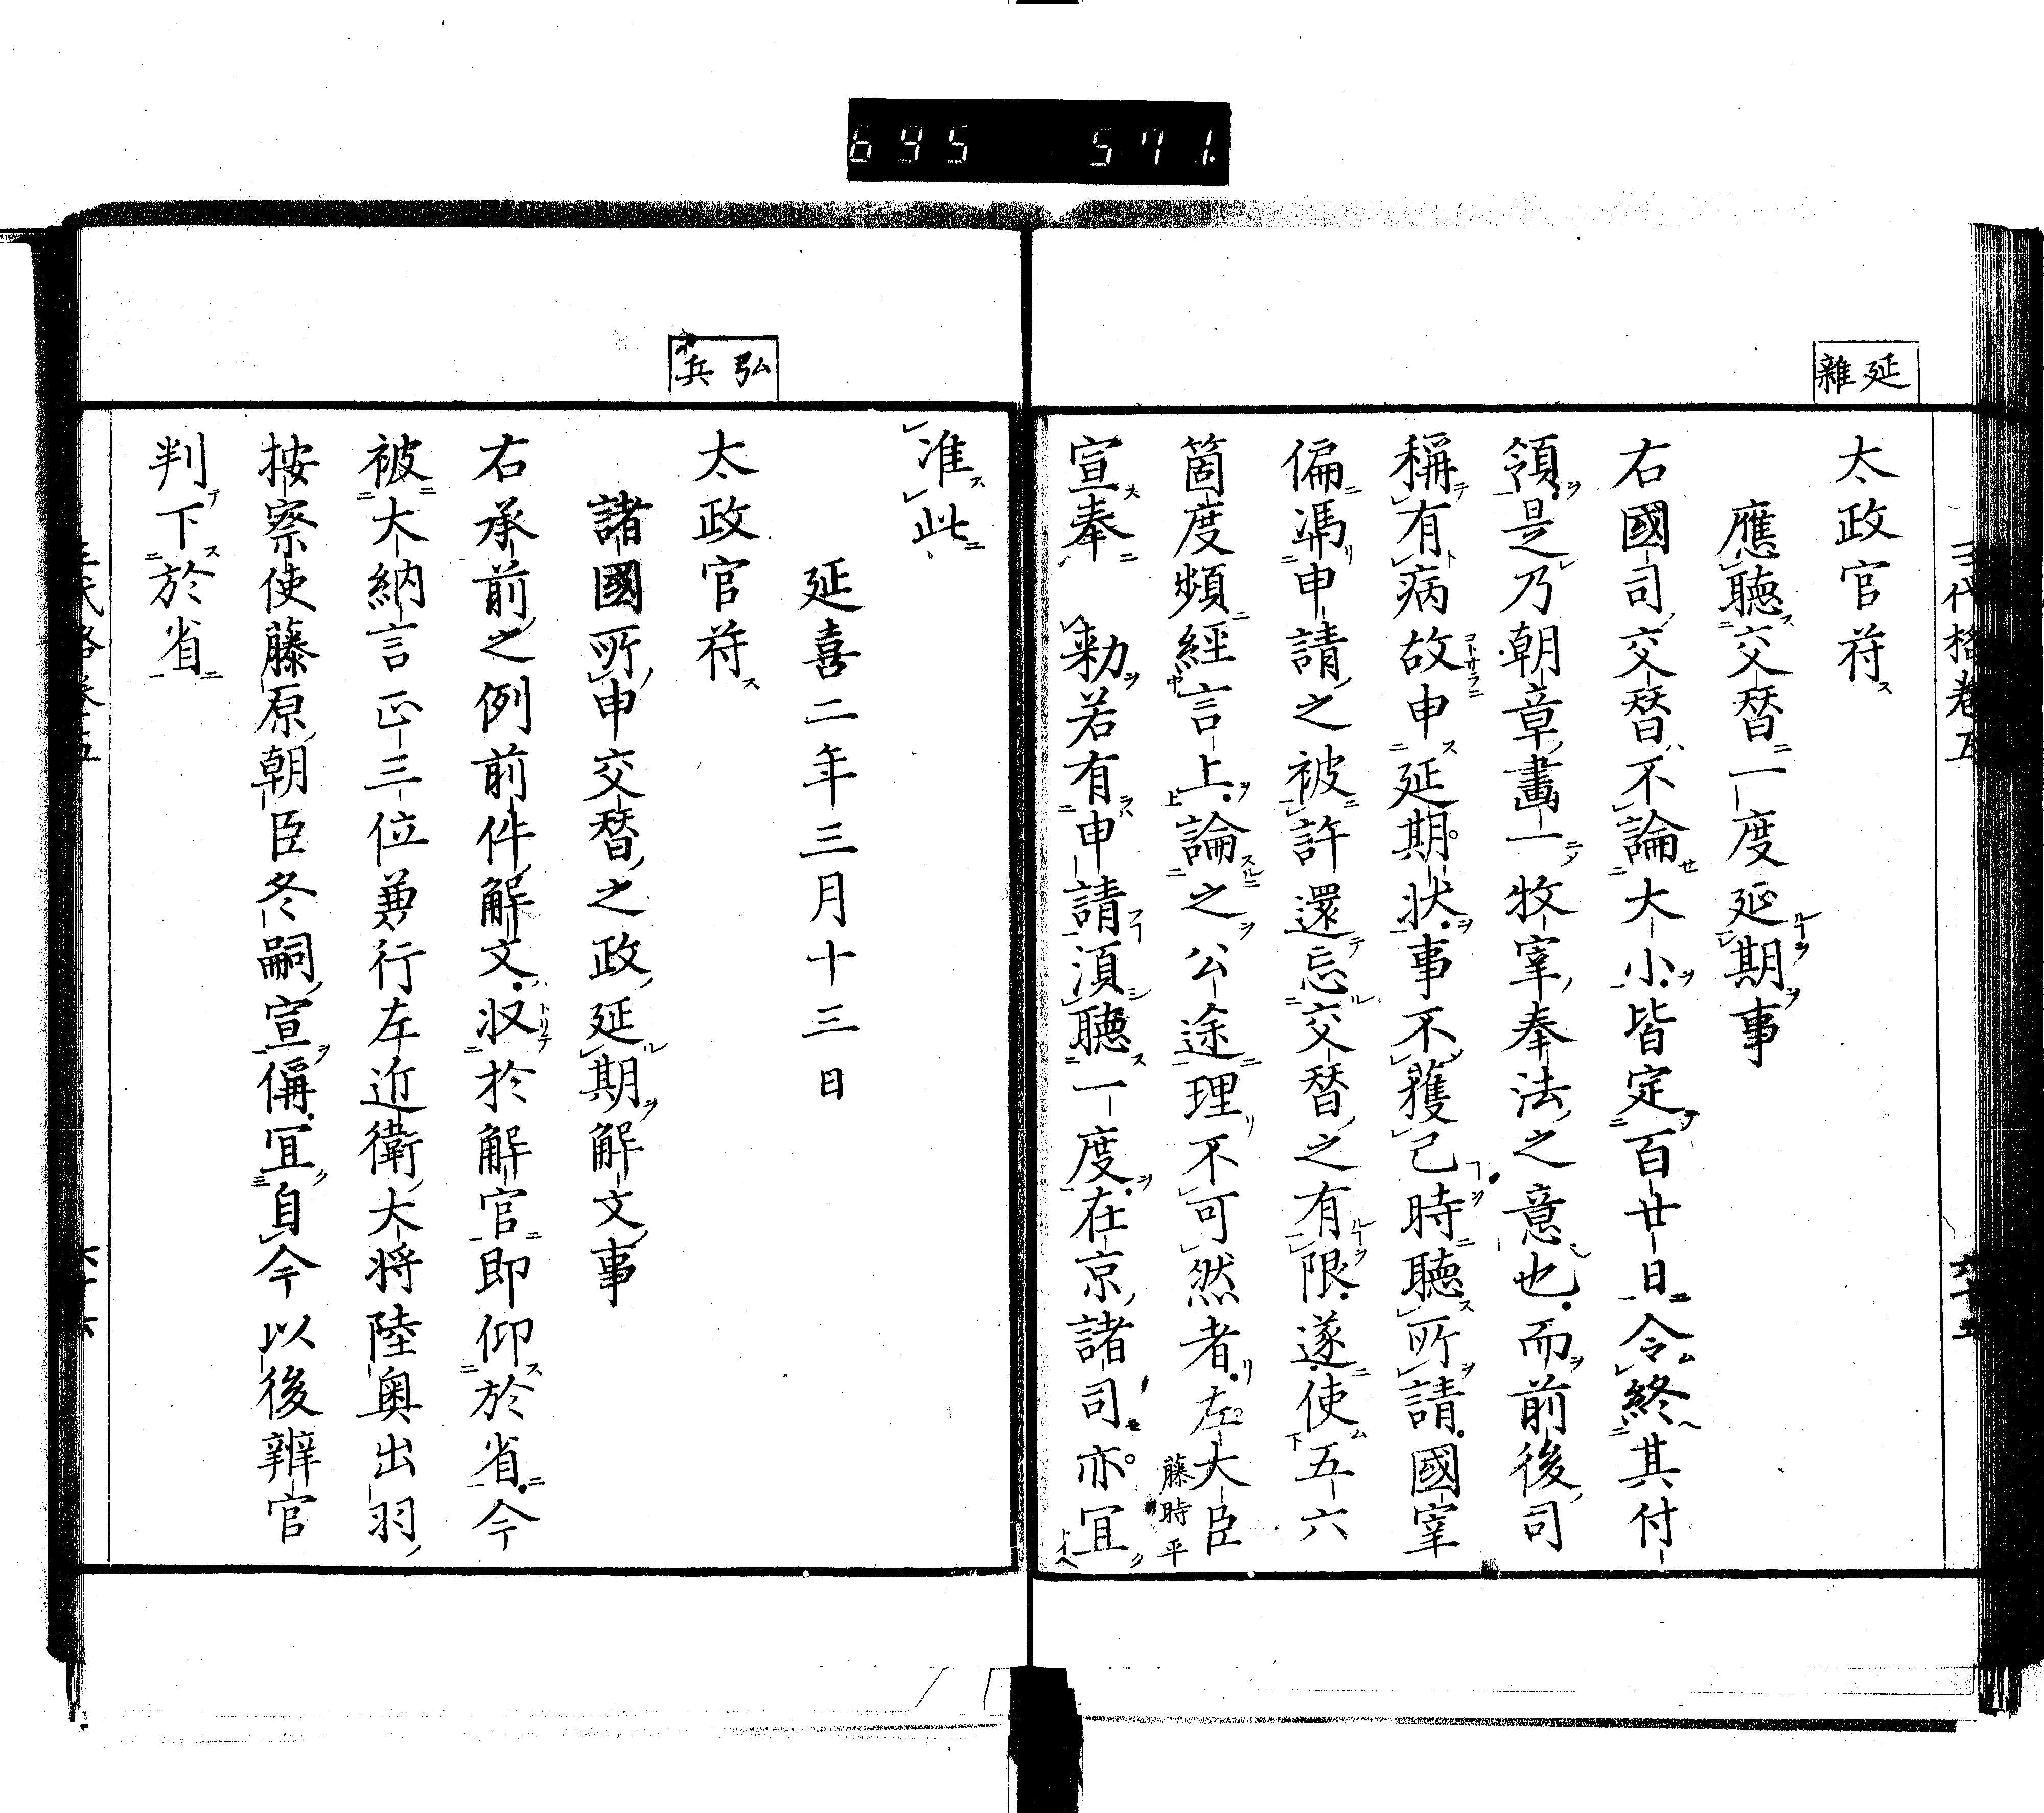 695 571.
三代格卷五
延雜
太政官符
應聽交替一度延期事
右國司交替不論大小皆定百廿日令終其付
領是乃朝章畫一牧宰奉法之意也而前後司
稱有病故申延期狀事不獲已時聽所請國宰
偏馮申請之被許還忘交替之有限遂使五六
箇度頻經言上論之公途理不可然者左大臣
藤時平
宣奉　勅若有申請須聽一度在京諸司亦冝
准此
延喜二年三月十三日
弘兵
太政官符
諸國所申交替之政延期解文事
右承前之例前件解文收於解官即仰於省今
被大納言正三位兼行左近衛大将陸奥出羽
按察使藤原朝臣冬嗣宣偁冝自今以後辨官
判下於省